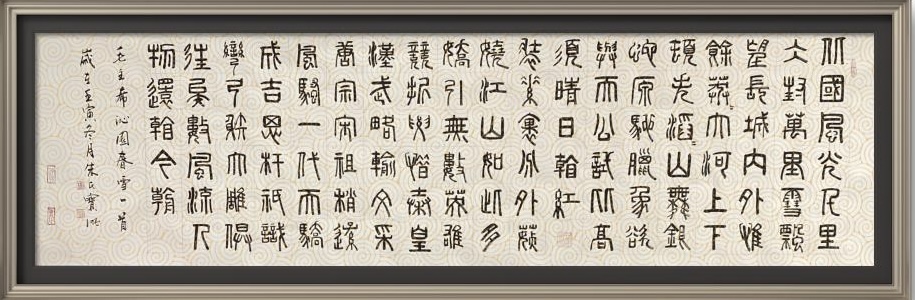 北國風光千里
冰封萬里雪飄
望長城內外惟
餘莽〻大河上下
頓失滔〻山舞銀
蛇原馳臘象欲
與天公試比高
須晴日看紅
裝素裹分外妖
嬈江山如此多
嬌引無數英雄
競折腰惜秦皇
漢武略輸文采
唐宗宋祖稍遜
風騷一代天驕
成吉思汗祇識
彎弓射大雕俱
往矣數風流人
物還看今朝
毛主席沁園春雪一首
歲在壬寅冬月朱氏寶